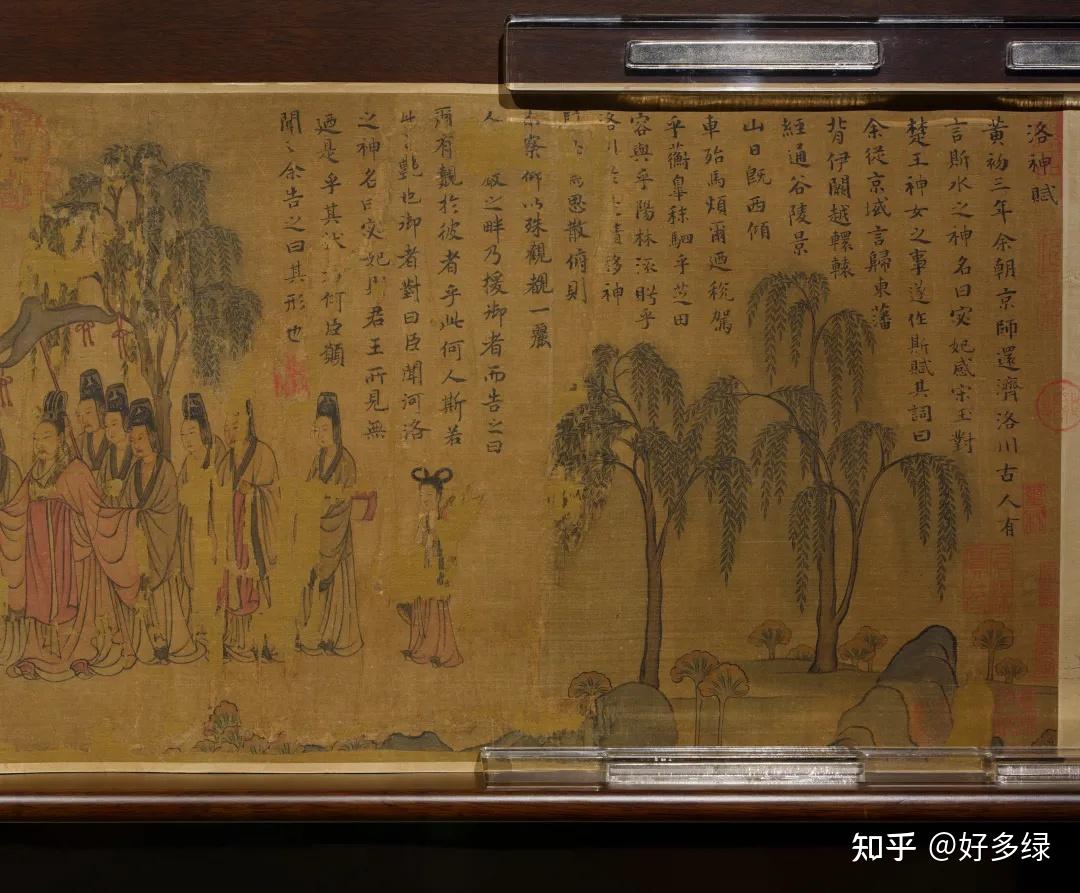 洛神賦
黃初三年余朝京師還濟洛川古人有
言斯水之神名曰宓妃感宋玉對
楚王神女之事遂作斯賦其詞曰
余從京域言歸東藩
背伊闕越轘轅
經通谷陵景
山日既西傾
車殆馬煩爾迺稅駕
乎蘅皐秣駟乎芝田
容與乎陽林流眄乎
洛川於 精移神
思散俯則
察仰以殊觀覩一麗
人 之畔乃援御者而告之曰
爾有覿於彼者乎此何人斯若
此 艷也御者對曰臣聞河洛
之神名曰宓妃 君王所見無
迺是乎其 何臣願
聞之余告之曰其形也
知乎 @好多绿